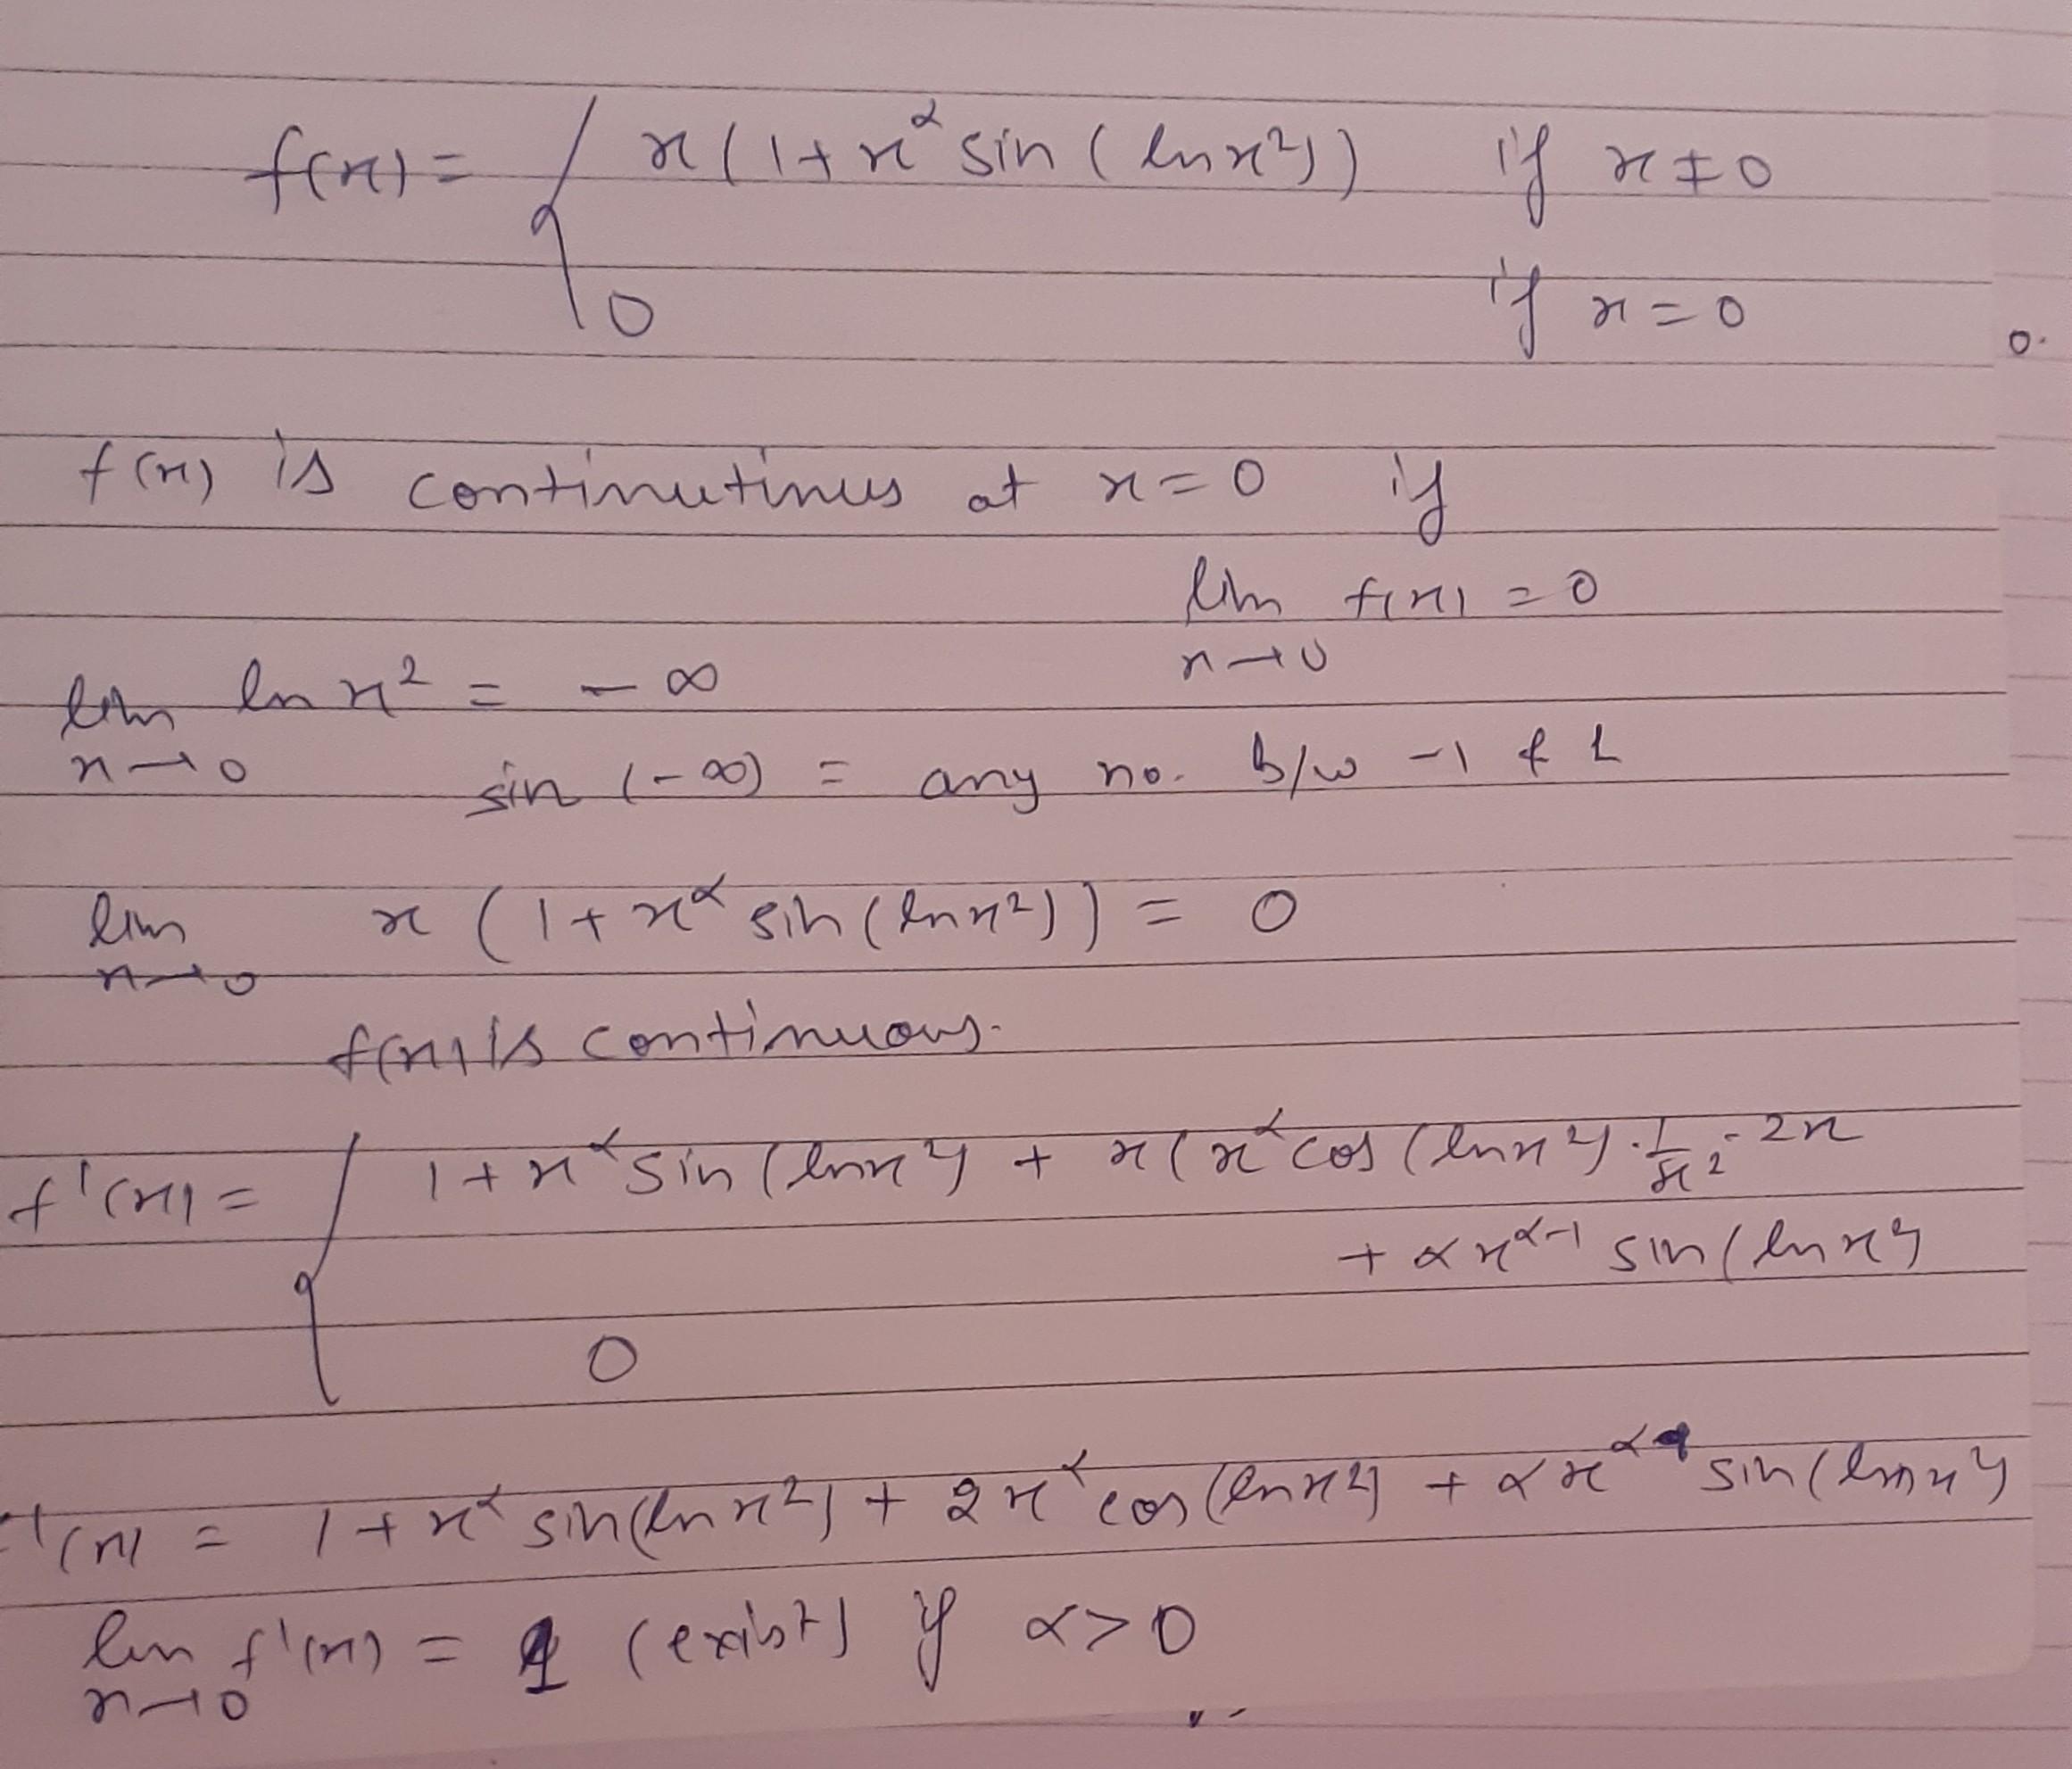 f(x) = { x(1+x^α sin(ln x²)) if x≠0
0 if x=0
0.
f(x) is continutinus at x=0 if
lim f(x) = 0
x→0
lim ln x² = -∞
x→0
sin (-∞) = any no. b/w -1 & 1
lim x (1+x^α sin(ln x²)) = 0
x→0
f(x) is continuous.
f'(x) = { 1+x^α sin(ln x²) + x(x^α cos(ln x²)·1/x²·2x
+ αx^(α-1) sin(ln x²)
0
f'(x) = 1+x^α sin(ln x²) + 2x^α cos(ln x²) + αx^α sin(ln x²)
lim f'(x) = 1 (exist) if α>0
x→0